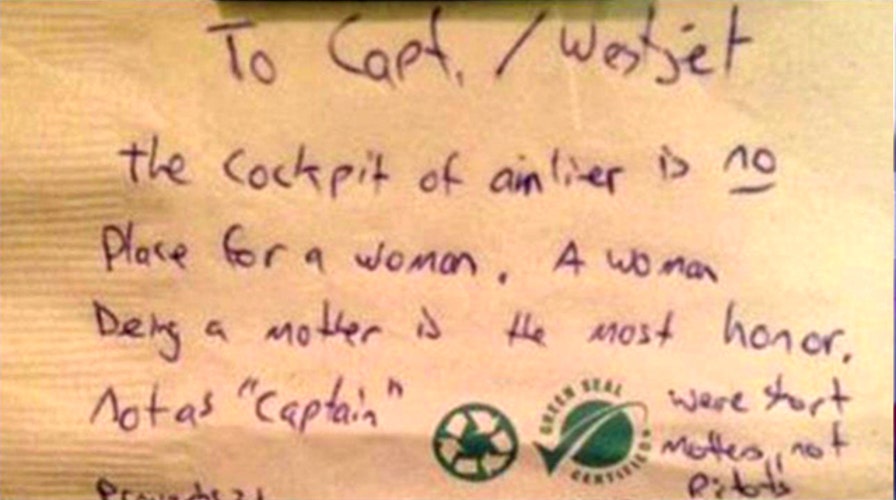 To Capt. / Westjet
the cockpit of airliner is no
Place for a woman. A woman
being a mother is the most honor.
Not as "captain"
were short
mothers, not
pilots
GREEN SEAL
CERTIFIED
Proverbs 31